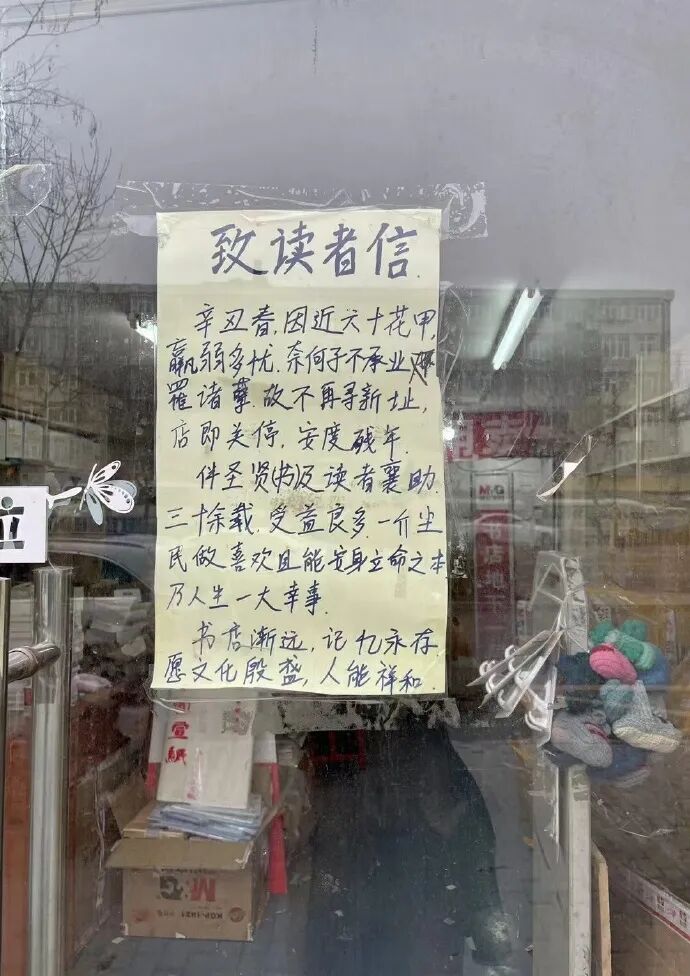 致读者信
辛丑春，因近六十花甲，
羸弱多忧．奈何子不承业
罹诸孽．故不再寻新址，
店即关停，安度残年．
伴圣贤(书)及读者襄助
三十余载．受益良多．一介尘
民做喜欢且能安身立命之本
乃人生一大幸事．
书店渐远，记忆永存
愿文化殷盛，人能祥和．
M&G
书店地
宣紙
M&G